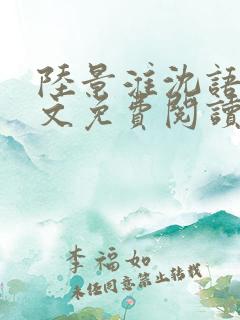 陸景淮沈語
文免費閱讀
李福如
未经同意禁止转载